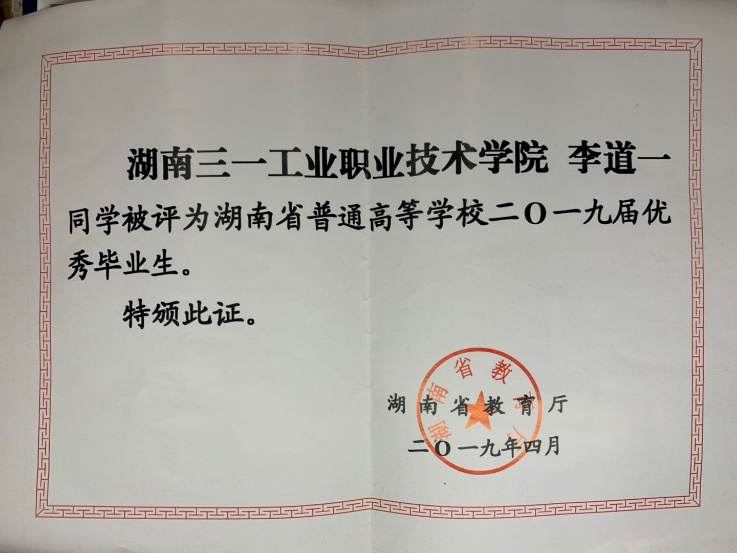 湖南三一工业职业技术学院 李道一
同学被评为湖南省普通高等学校二〇一九届优
秀毕业生。
特颁此证。
湖南省教育厅
湖南省教育厅
二〇一九年四月